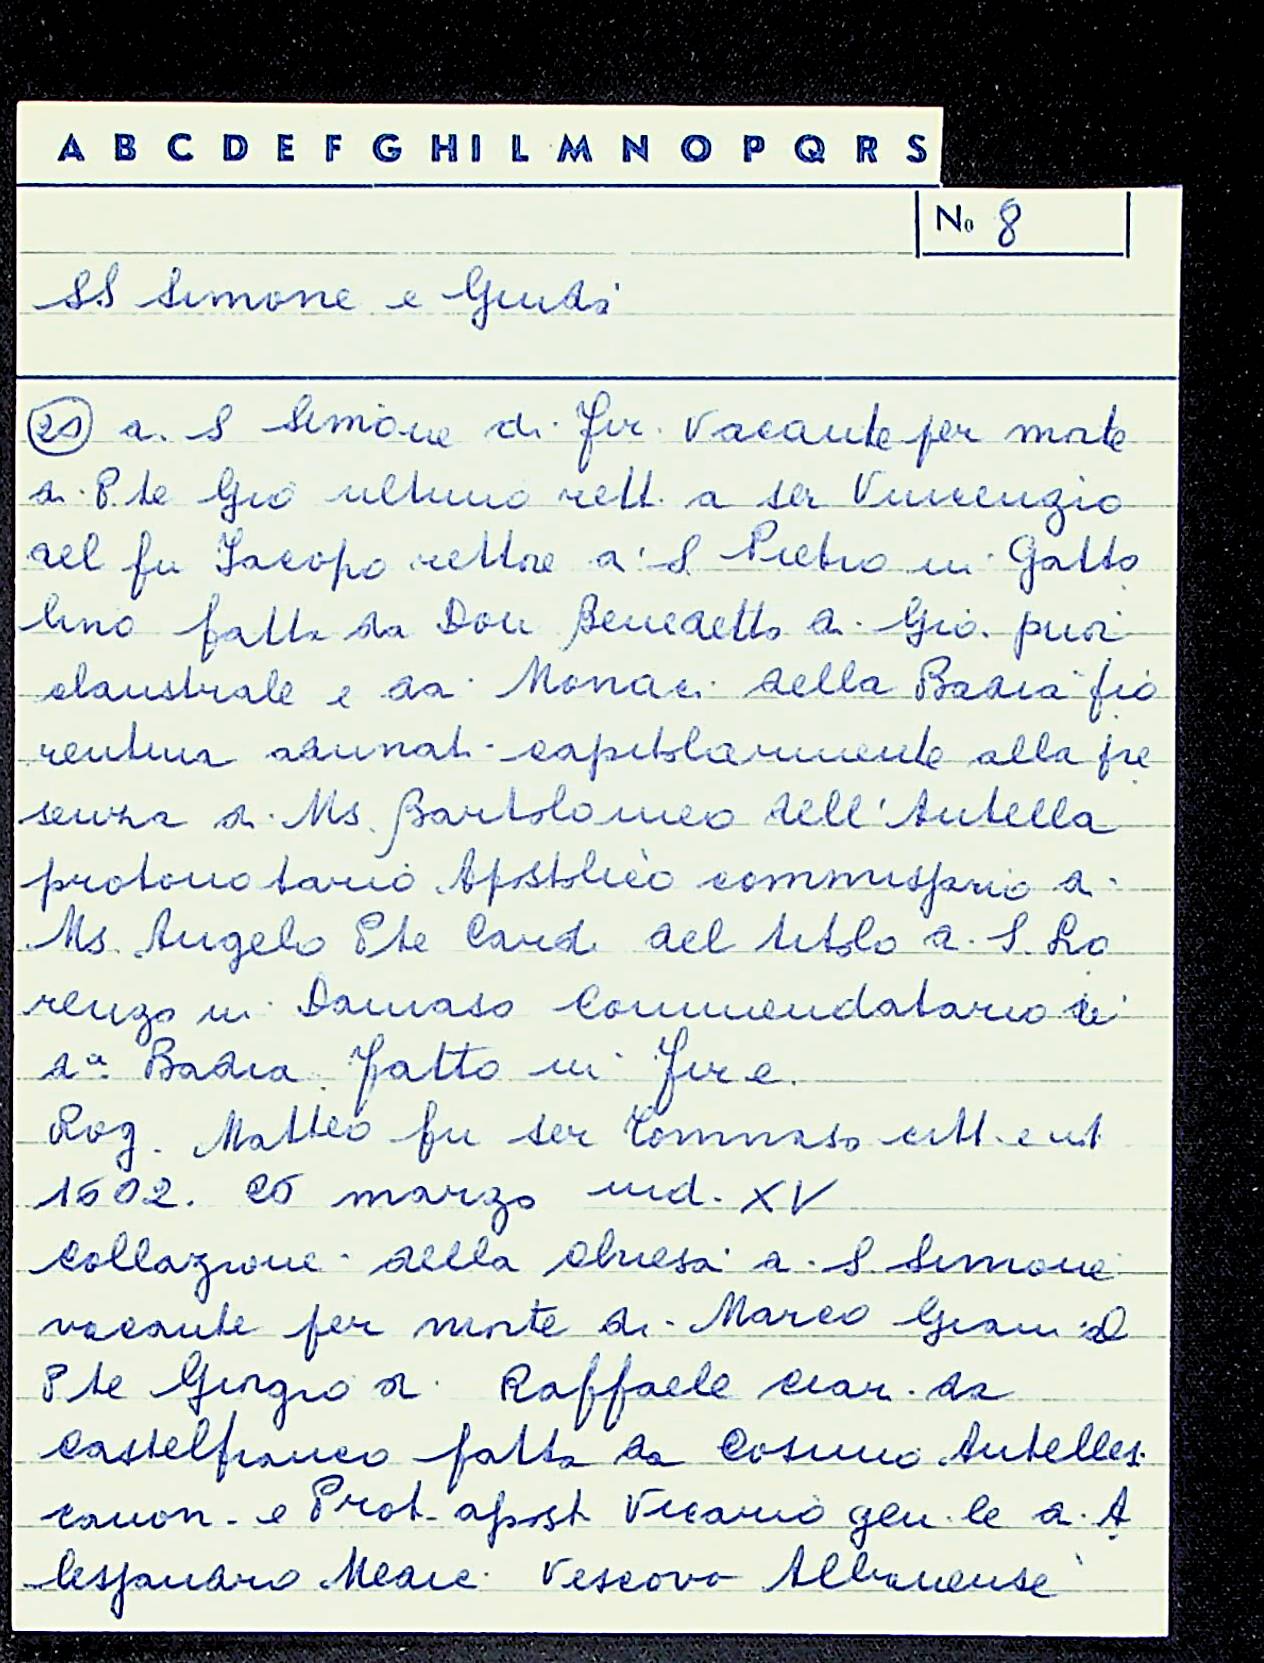 A B C D E F G H I L M N O P Q R S
No 8
SS Simone e Giuda
21 di S Simone di Fir. vacante per morte
di P.te Gio ultimo rett. a ser Vincenzio
del fu Iacopo rettore di S Pietro in Gatto
lino fatta da Don Benedetto di Gio. prior
claustrale e da Monaci della Badia fio
rentina adunati capitolarmente alla pre
senza di Ms. Bartolomeo dell'Antella
protonotario Apostolico commissario di
Ms. Angelo P.te Card. del titolo di S. Lo
renzo in Damaso Commendatario di
da Badia. Fatto in Fire.
Rog. Matteo fu ser Tommaso citt.
1602. 25 marzo ind. XV
Collazione della chiesa di S Simone
vacante per morte di Marco Giani a
P.te Giorgio di Raffaele da
Castelfranco fatta da Cosimo Antelles.
canon. e Prot. apost. Vicario gen.le di A
lessandro Medic. Vescovo Albanense